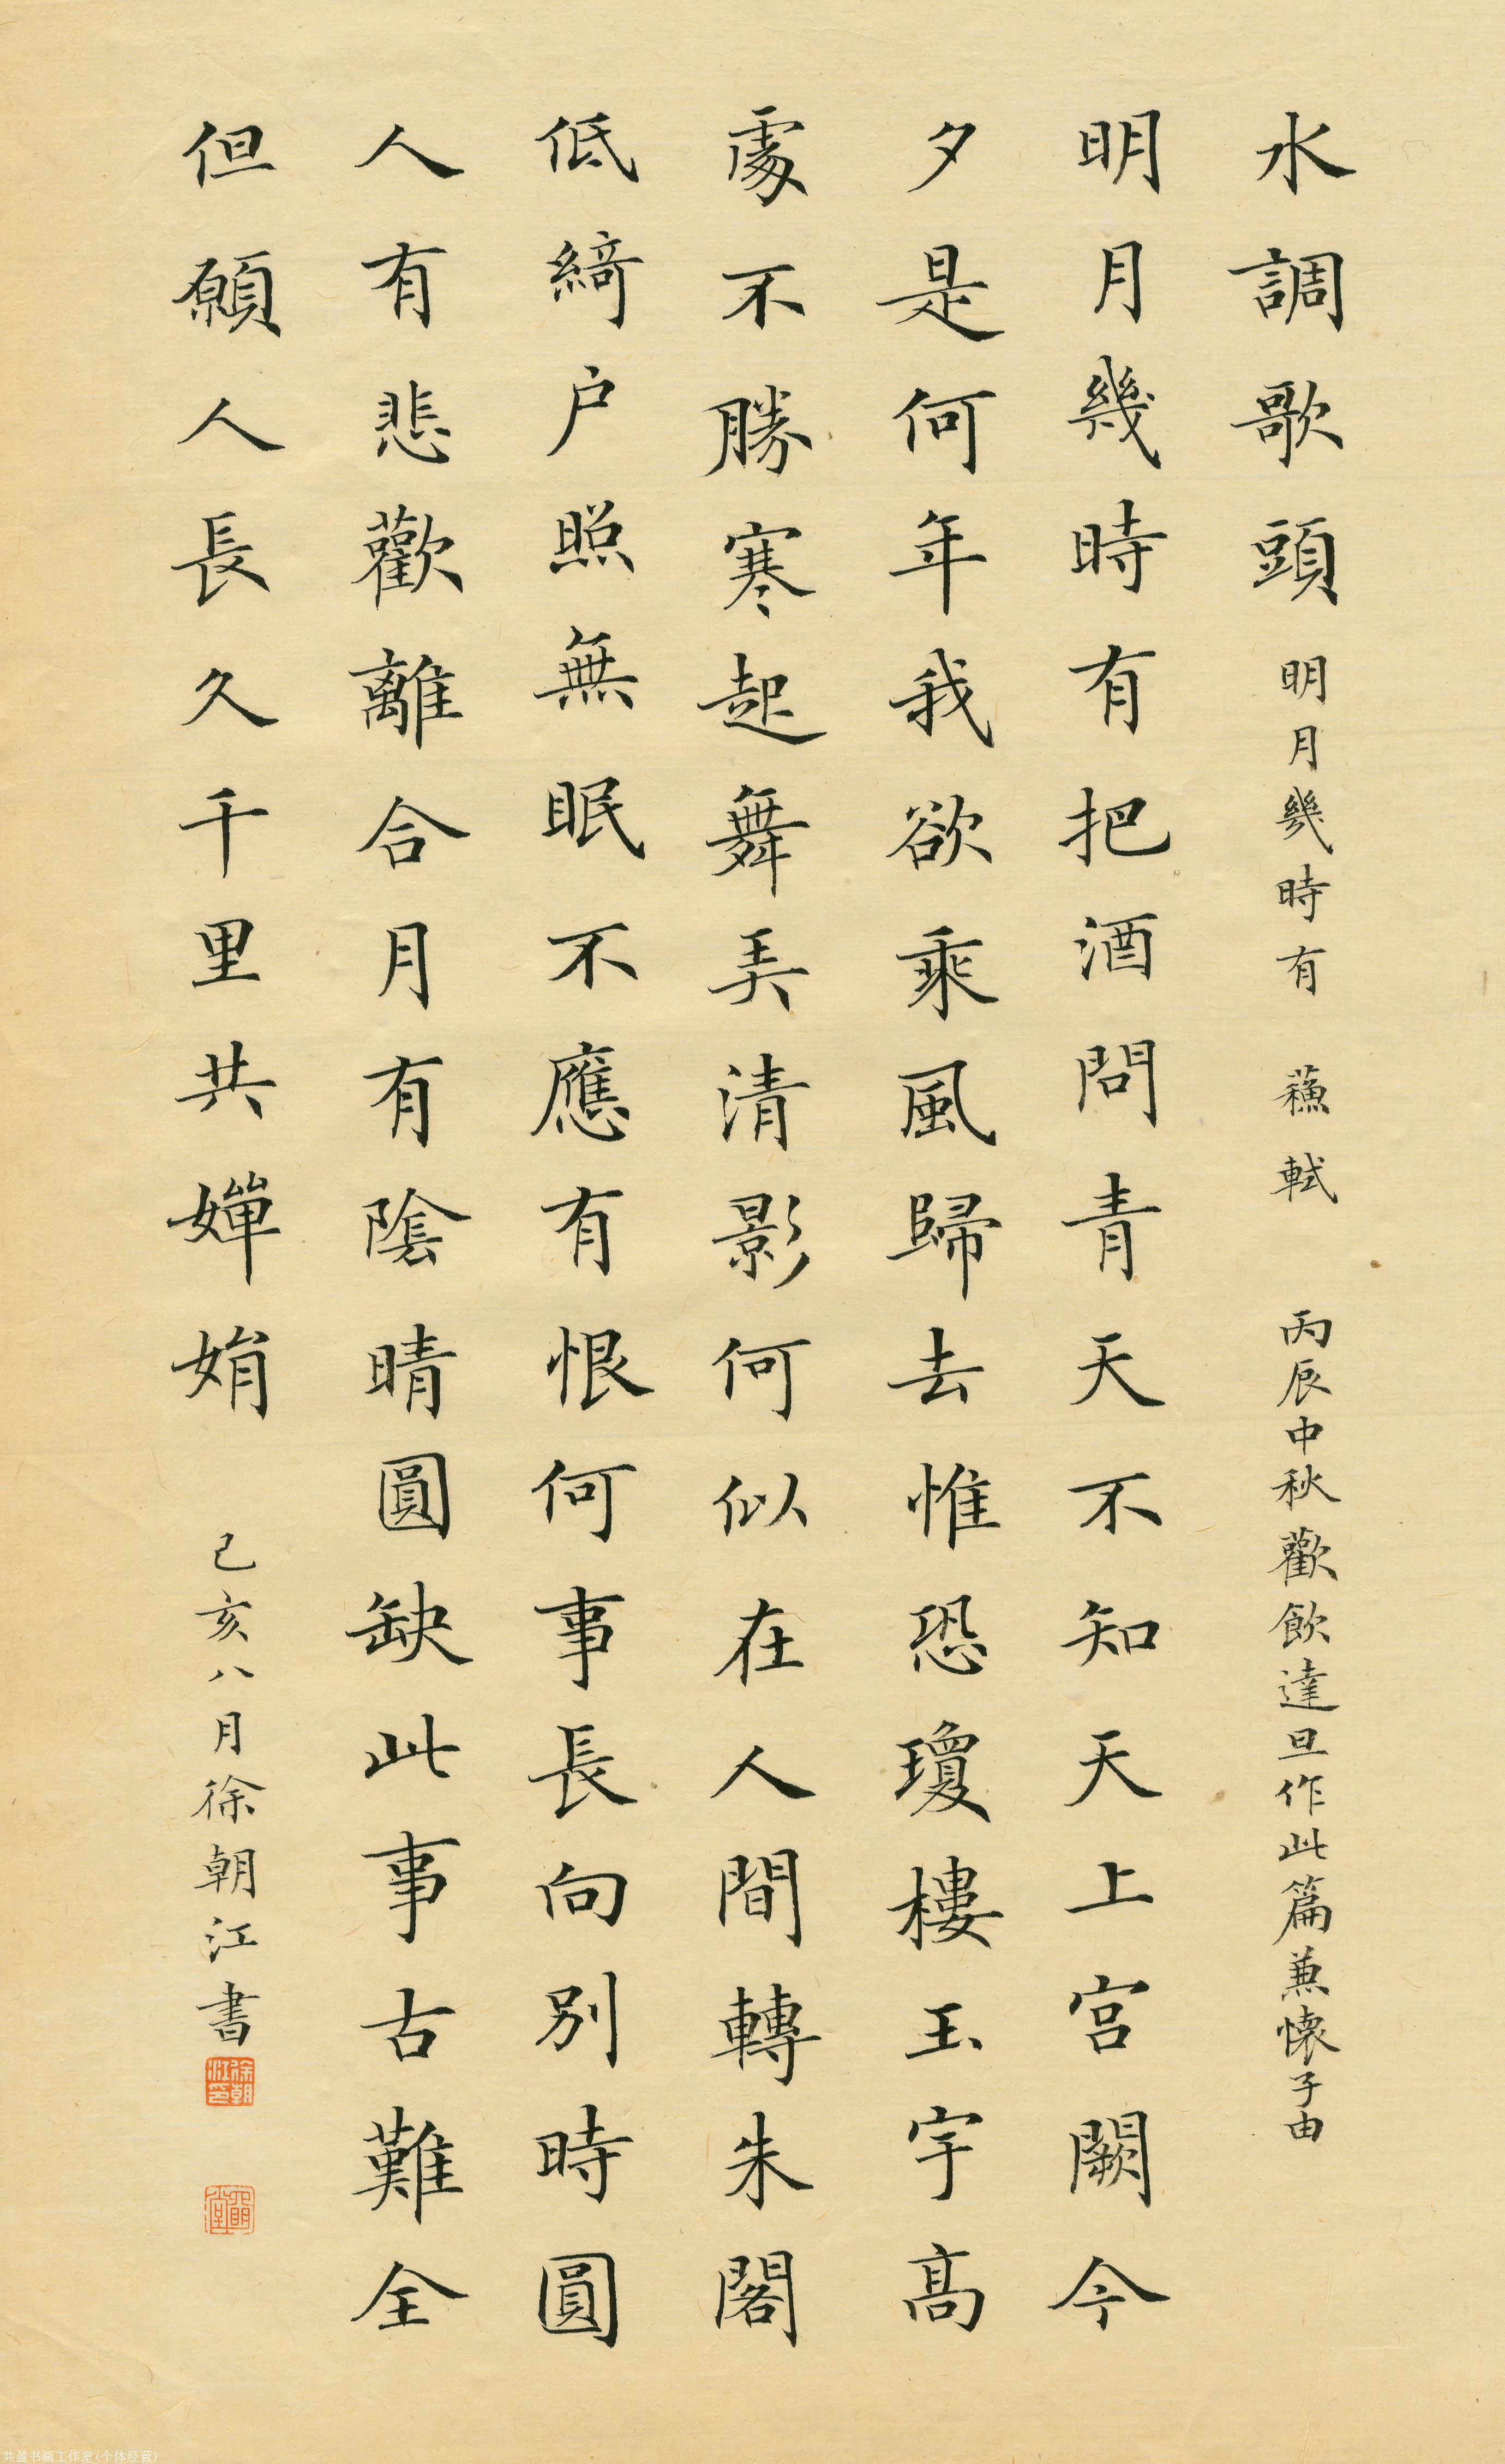 水調歌頭 明月幾時有 蘓軾 丙辰中秋歡飲達旦作此篇兼懷子由
明月幾時有把酒問青天不知天上宮闕今
夕是何年我欲乘風歸去惟恐瓊樓玉宇高
處不勝寒起舞弄清影何似在人間轉朱閣
低綺户照無眠不應有恨何事長向別時圓
人有悲歡離合月有陰晴圓缺此事古難全
但願人長久千里共嬋娟 己亥八月徐朝江書
徐朝江印
共盈书画工作室(个体经营)